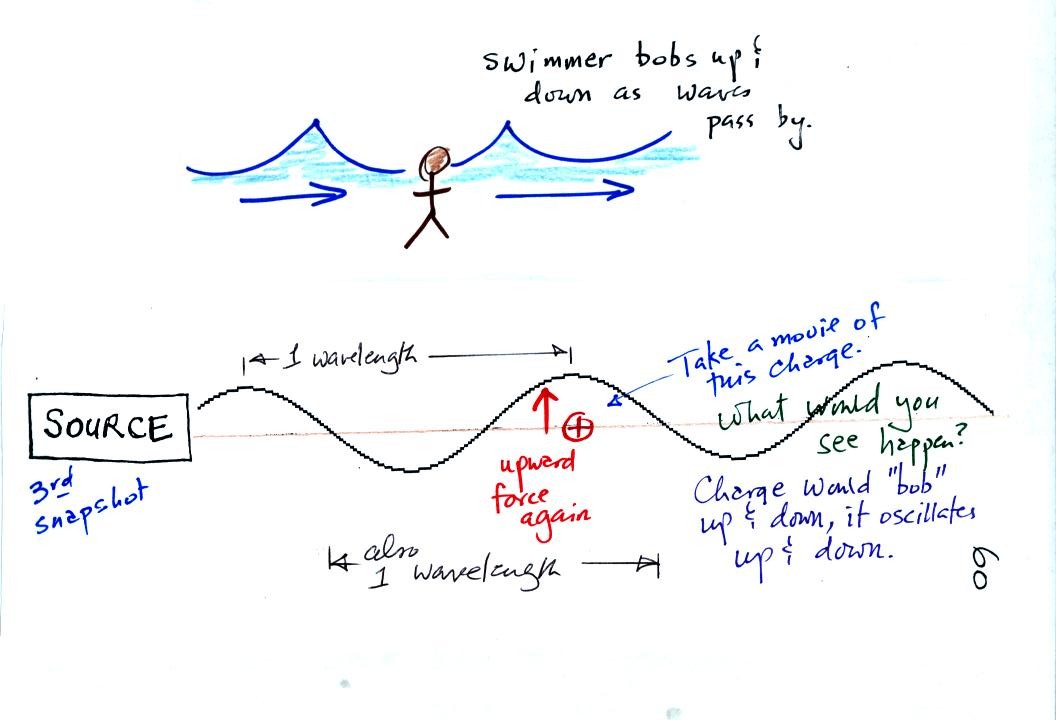 swimmer bobs up &
down as waves
pass by.
1 wavelength
Take a movie of
this charge.
SOURCE
What would you
see happen?
3rd
snapshot
upward
force
again
Charge would "bob"
up & down, it oscillates
up & down.
also
1 wavelength
60